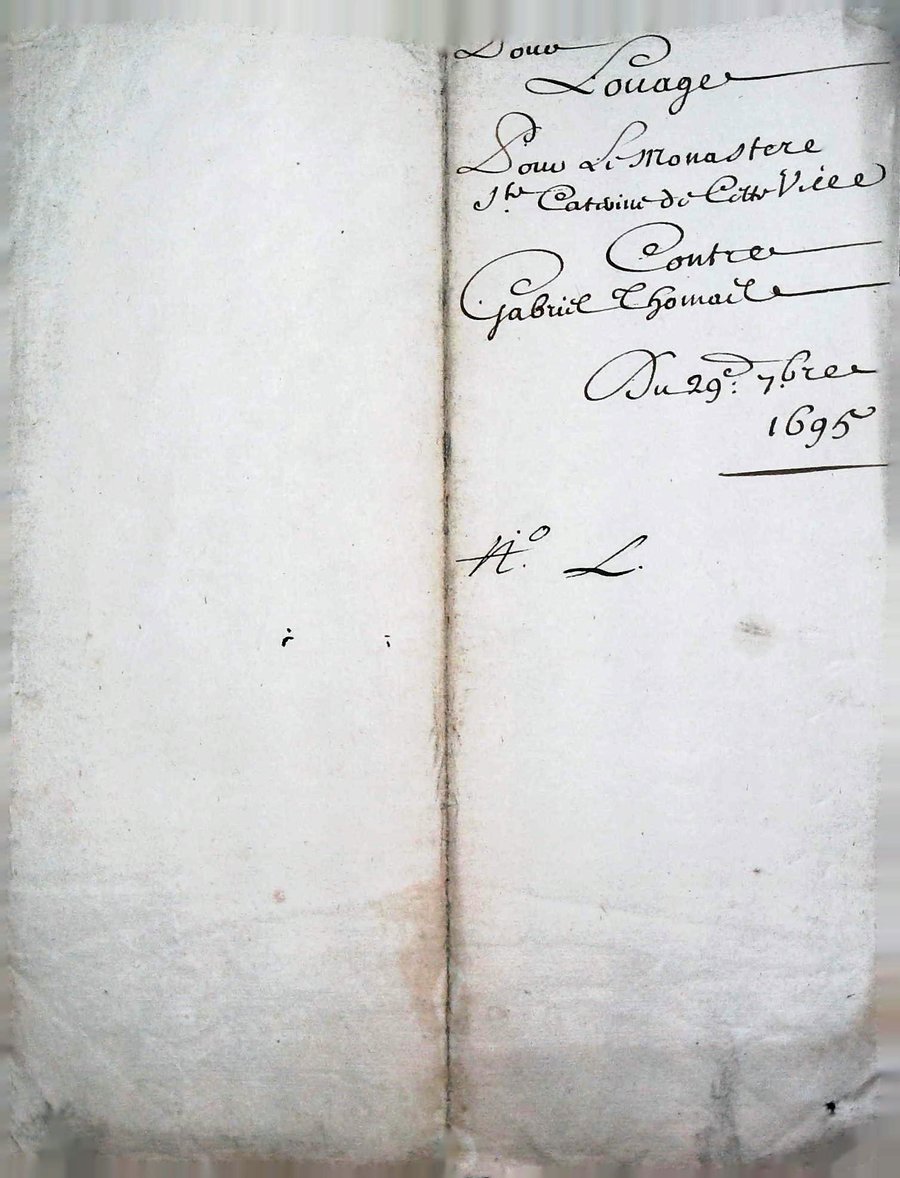 Pour
Louage
Pour Le Monastere
Ste Caterine de Cette Ville
Contre
Gabriel Thomail
Du 29e: 7.bre
1695
No. L.